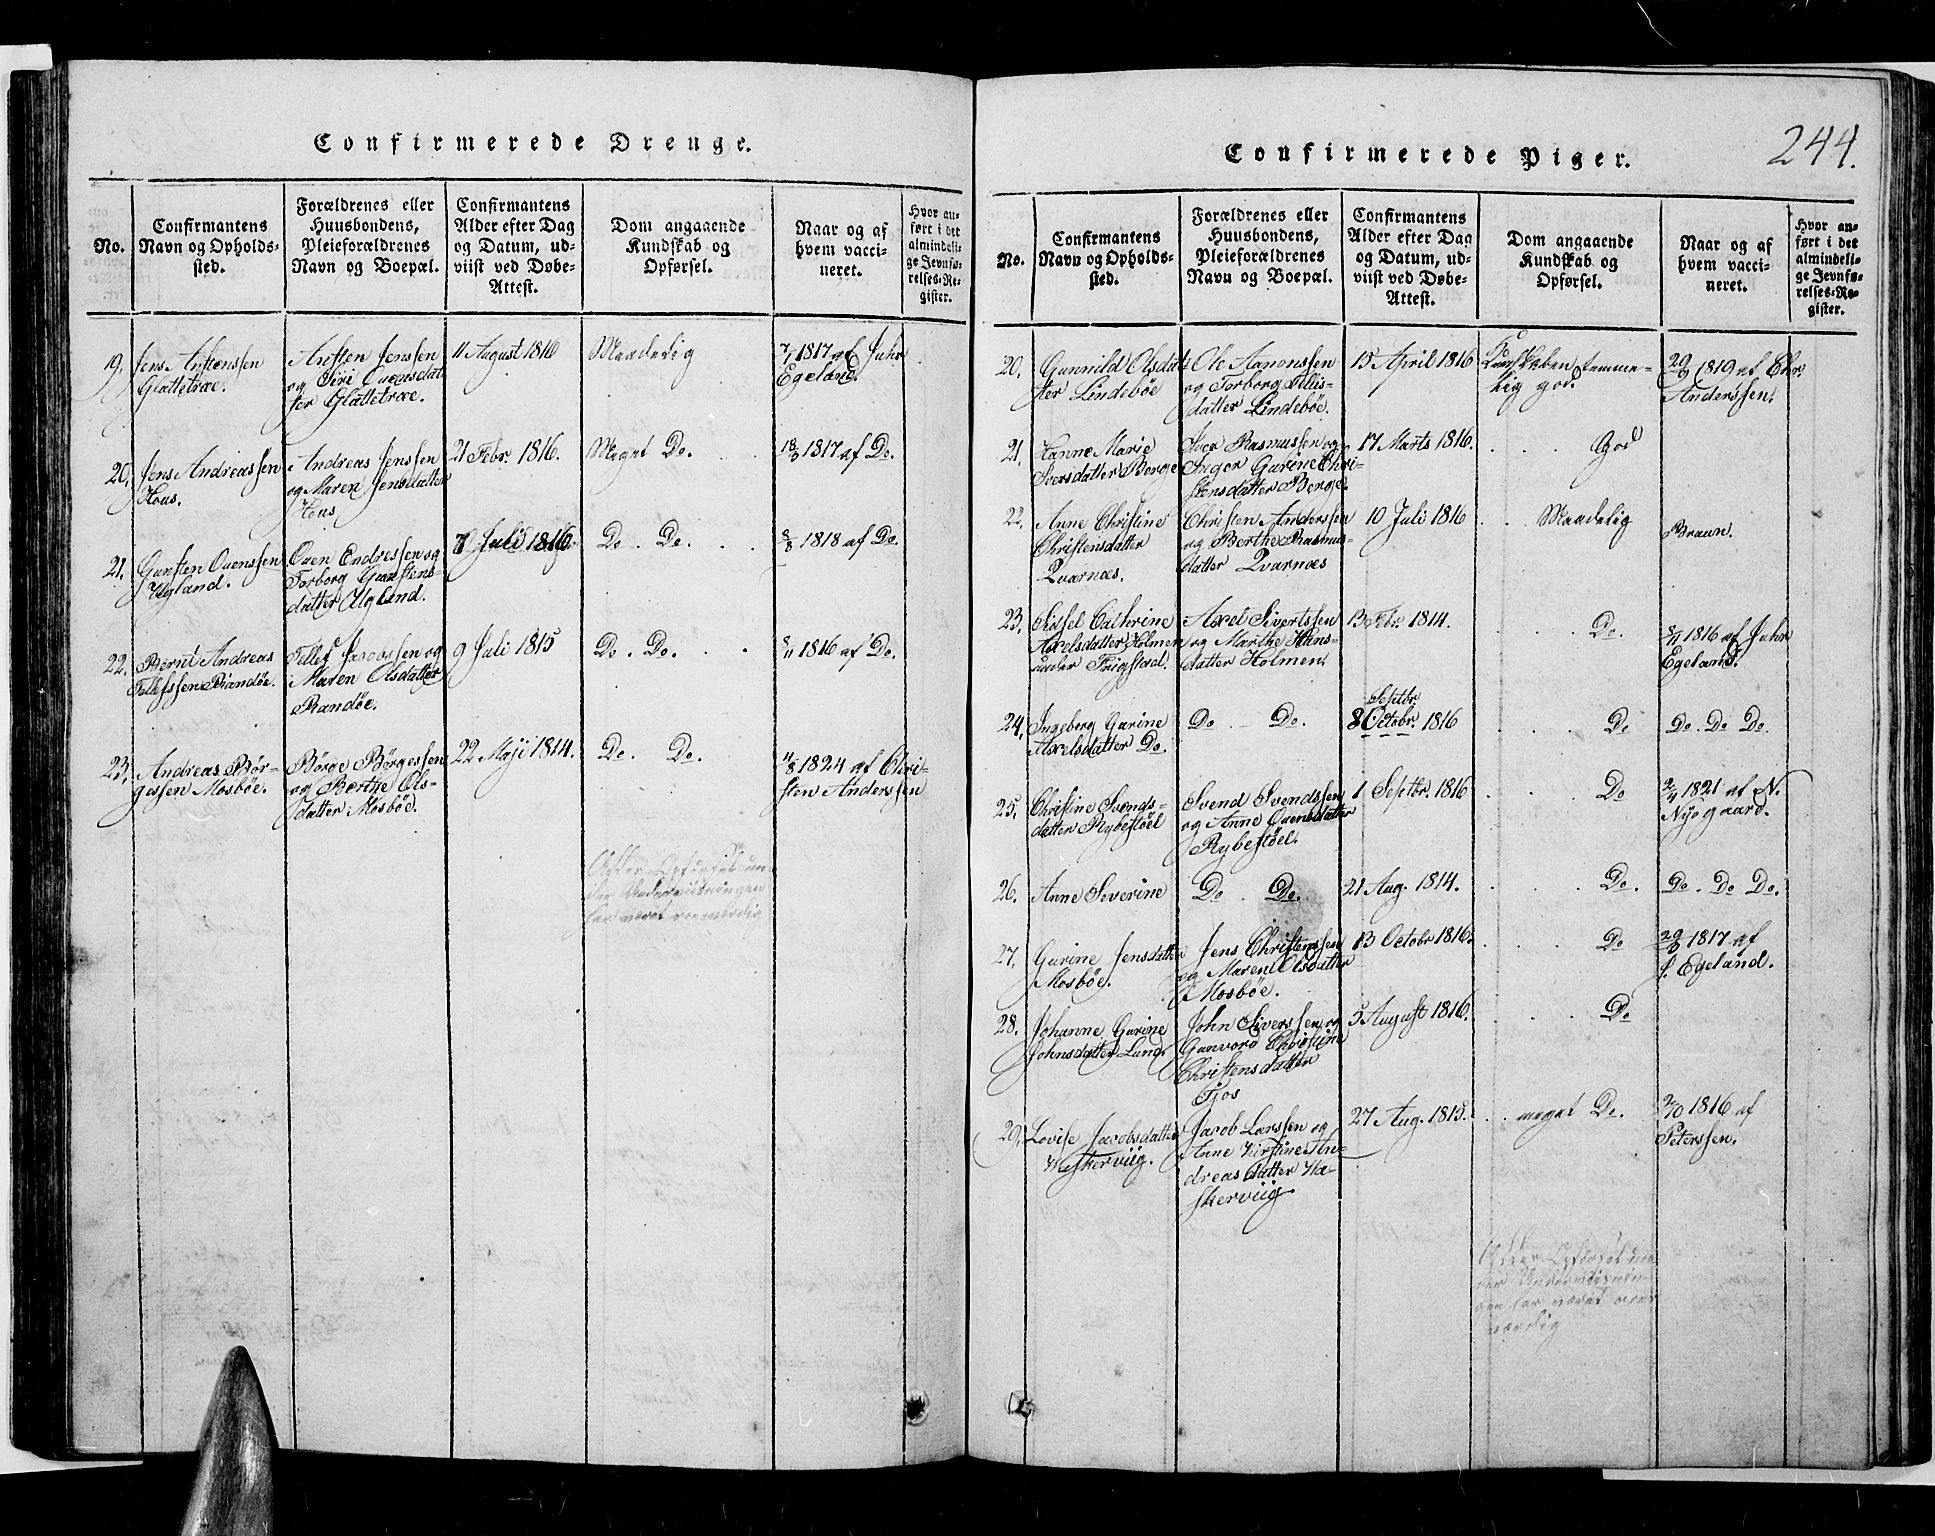 Confirmerede Drenge.
No.
Confirmantens
Navn og Opholds-
sted.
Forældrenes eller
Huusbondens,
Pleieforældrenes
Navn og Boepæl.
Confirmantens
Alder efter Dag
og Datum, ud-
viist ved Døbe-
Attest.
Dom angaaende
Kundskab og
Opførsel.
Naar og af
hvem vacci-
neret.
Hvor an-
ført i det
almindeli-
ge Jevnfø-
relses-Re-
gister.
19.
Jens Anstensen
Glattetræ.
Ansten Jenssen
og Siri Ouensdat-
ter Glattetræ.
11 August 1816
Maadelig
7/1 1817 af Juhr
Egeland.
20.
Jens Andreassen
Hous.
Andreas Jenssen
og Maren Jensdatter
Hous
21 Febr. 1816.
Meget Do.
18/3 1817 af Do.
21.
Gunsten Ouenssen
Ugland.
Ouen Endressen og
Torborg Gunstens-
datter Ugland.
7 Juli 1816.
Do. Do.
8/8 1818 af Do.
22.
Bernt Andreas
Tellefssen Randøe.
Tellef Jacobssen og
Maren Olsdatter
Randøe.
9 Juli 1815
Do. Do.
8/11 1816 af Do.
23.
Andreas Bør-
gessen Mosbøe.
Børge Børgessen
og Berthe Ols-
datter Mosbøe.
22 Maji 1814.
Do. Do.
11/8 1824 af Chri-
sten Anderssen
Alles Opførsel un-
der Underviisningen
har været roesværdig
244.
Confirmerede Piger.
No.
Confirmantens
Navn og Opholds-
sted.
Forældrenes eller
Huusbondens,
Pleieforældrenes
Navn og Boepæl.
Confirmantens
Alder efter Dag
og Datum, ud-
viist ved Døbe-
Attest.
Dom angaaende
Kundskab og
Opførsel.
Naar og af
hvem vacci-
neret.
Hvor an-
ført i det
almindeli-
ge Jevnfø-
relses-Re-
gister.
20.
Gunnild Olsdat-
ter Lindebøe
Ole Aanonssen
og Torborg Tellis-
datter Lindebøe.
15 April 1816
Kundskaben temme-
lig god.
29/9 1819 af Chr.
Anderssen.
21.
Hanne Marie
Iversdatter Berge
Iver Rasmussen og
Inger Gurine Chri-
stensdatter Berge.
17 Marts 1816.
God
22.
Anne Christine
Christensdatter
Qvarnæs.
Christen Anderssen
og Berthe Rasmus-
datter Qvarnæs
10 Juli 1816
Maadelig
Braun.
23.
Sissel Cathrine
Axelsdatter Holmen
under Frigstad.
Axel Sivertssen
og Marthe Hans-
datter Holmen.
13 Febr. 1814.
Do.
8/11 1816 af Juhr
Egeland.
24.
Ingeborg Gurine
Axelsdatter Do.
Do Do.
Septbr.
8 Octobr. 1816
Do
Do. Do Do.
25.
Christine Svends-
datter Rybestøel
Svend Svendssen
og Anne Ouensdatter
Rybestøel.
1 Septbr. 1816
Do
2/4 1821 af N.
Nygaard.
26.
Anne Severine
Do. Do.
21 Aug. 1814.
Do.
Do. Do Do.
27.
Gurine Jensdatter
Mosbøe.
Jens Christenssen
og Maren Olsdatter
Mosbøe.
13 Octobr 1816.
Do
29/3 1817 af
J. Egeland.
28.
Johanne Gurine
Johnsdatter Lund.
John Siverssen og
Gunvord Christine
Christensdatter
Tjos
5 August 1816.
Do
29.
Lovise Jacobsdatter
Weskerviig.
Jacob Larssen og
Anne Kirstine An-
dreasdatter Ha-
skerviig
27 Aug. 1815.
meget Do.
2/10 1816 af
Peterssen.
Alles Opførsel un-
der Underviisnin-
gen har været roes-
værdig